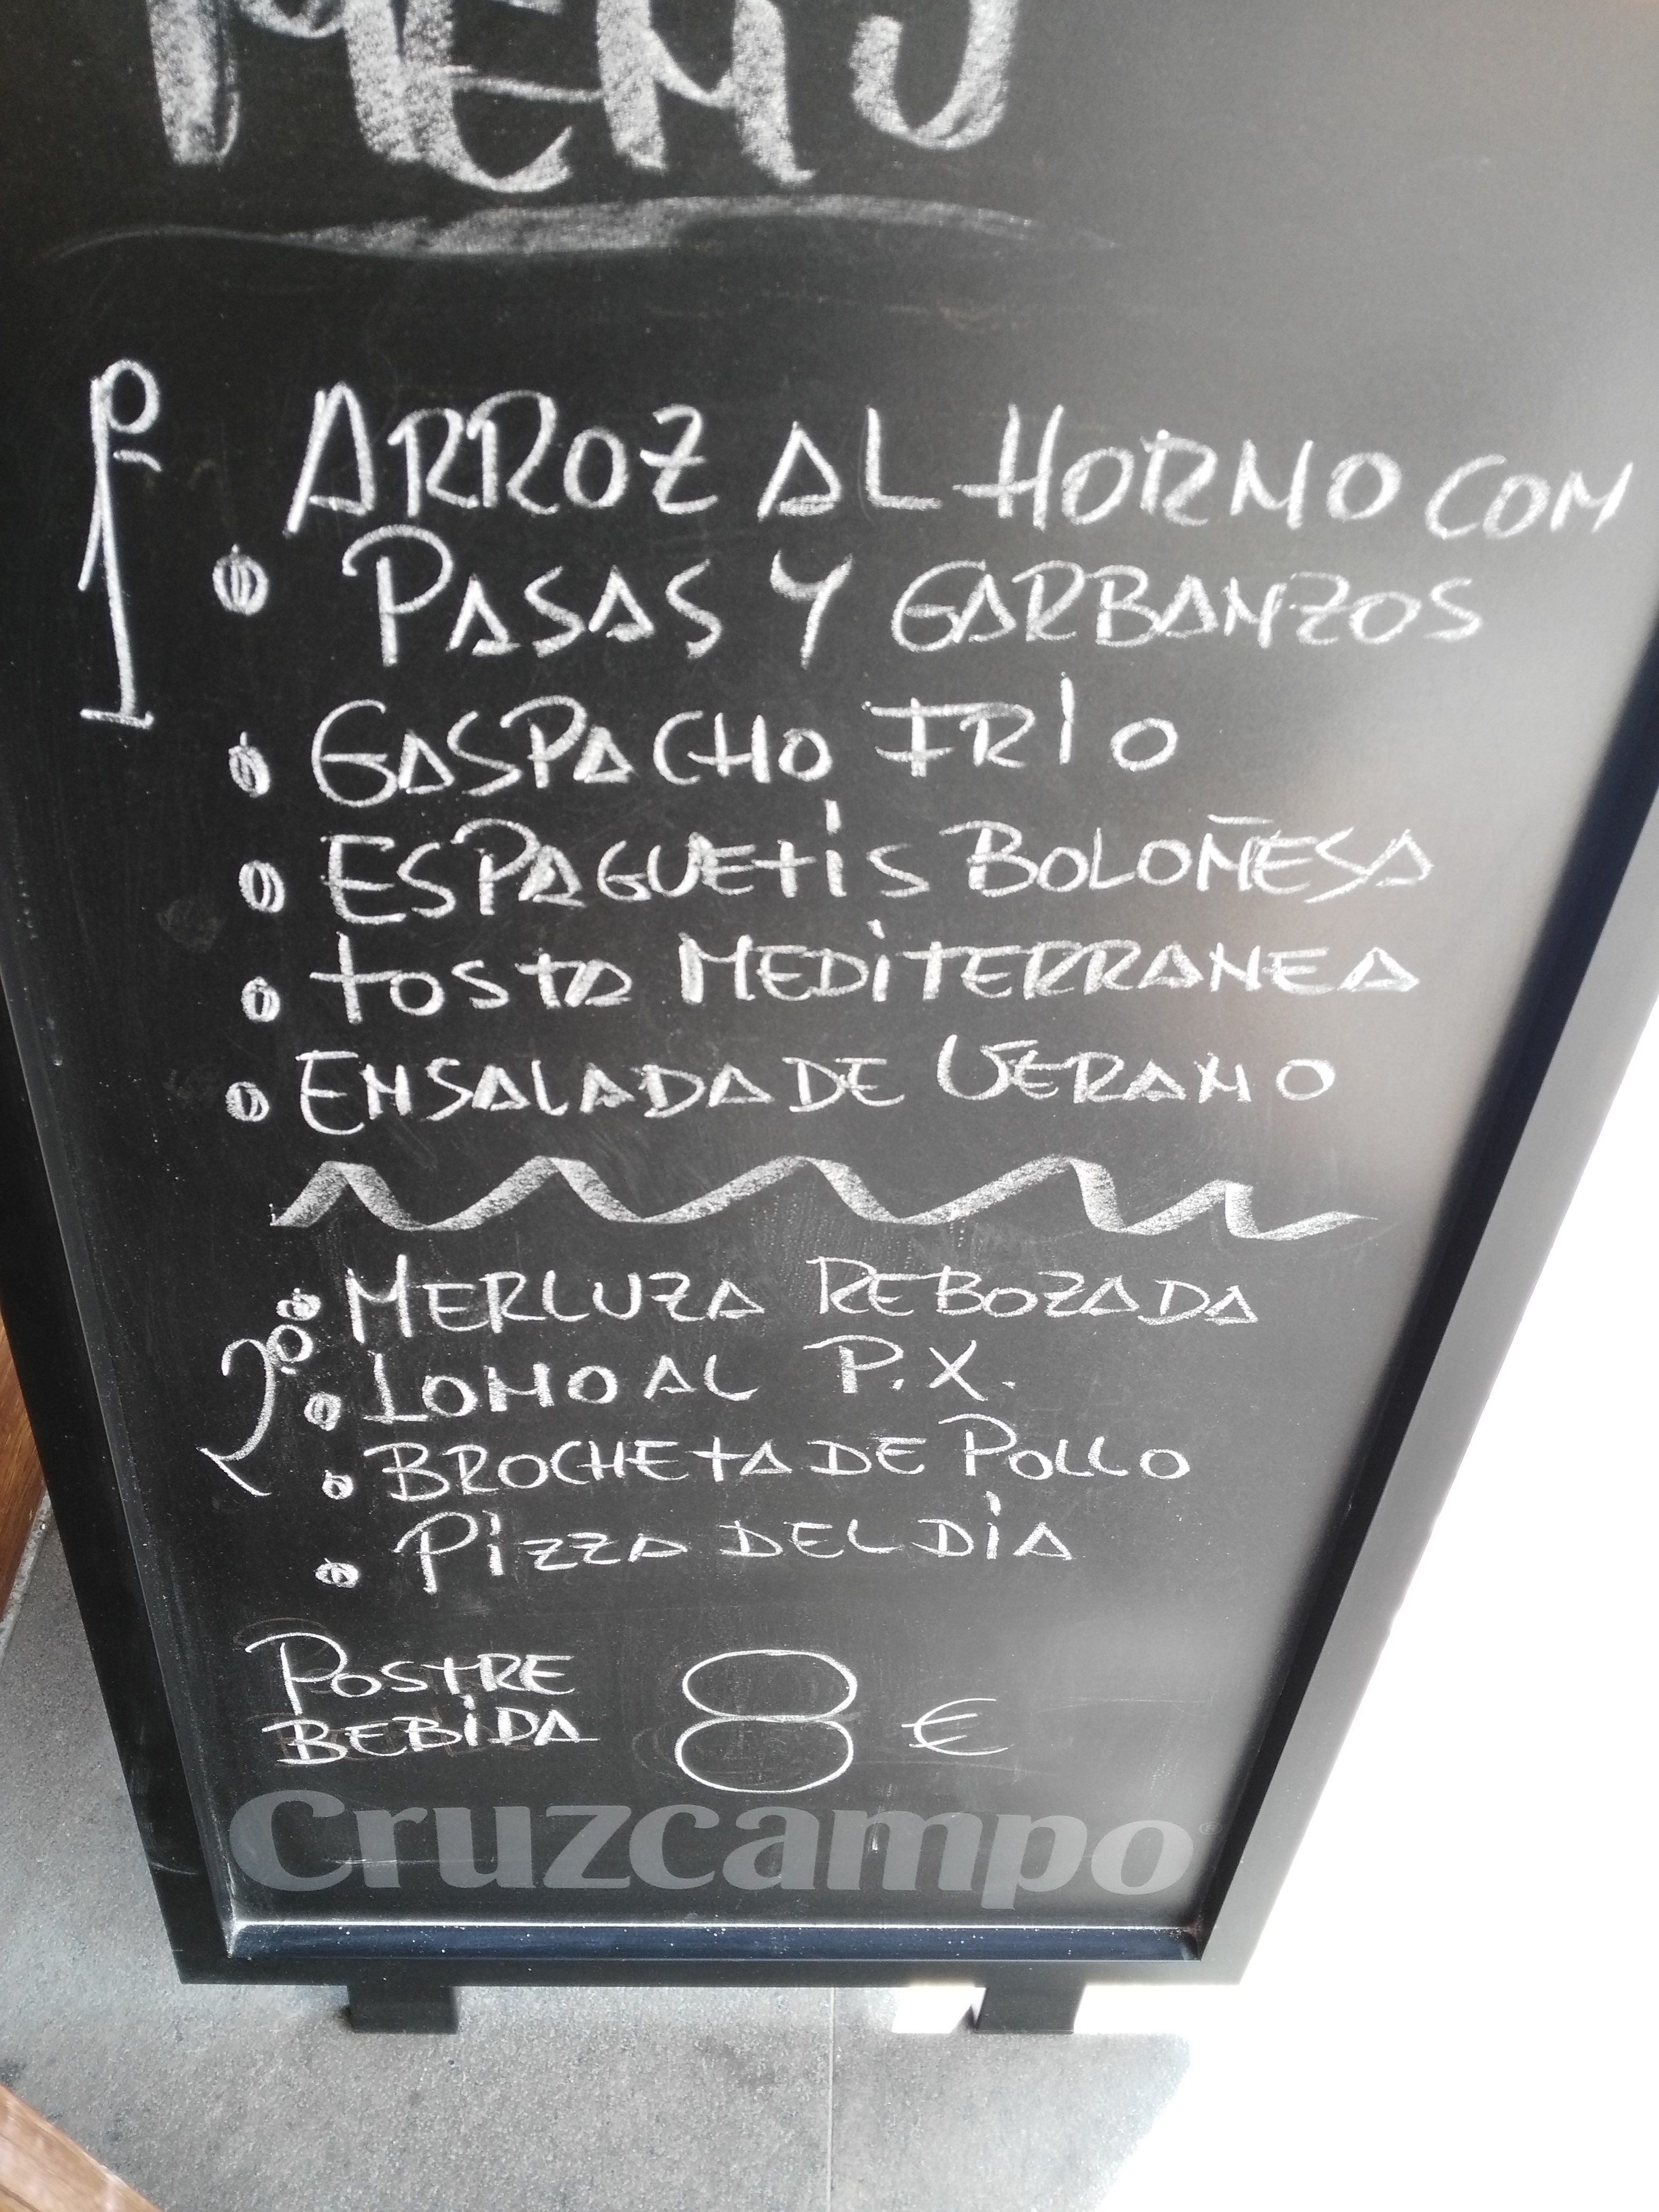 MENÚ
1º
ARROZ AL HORNO CON
PASAS Y GARBANZOS
GASPACHO FRÍO
ESPAGUETIS BOLOÑESA
TOSTA MEDITERRANEA
ENSALADA DE VERANO
2º
MERLUZA REBOZADA
LOMO AL P.X.
BROCHETA DE POLLO
PIZZA DEL DÍA
POSTRE
BEBIDA
8 €
Cruzcampo